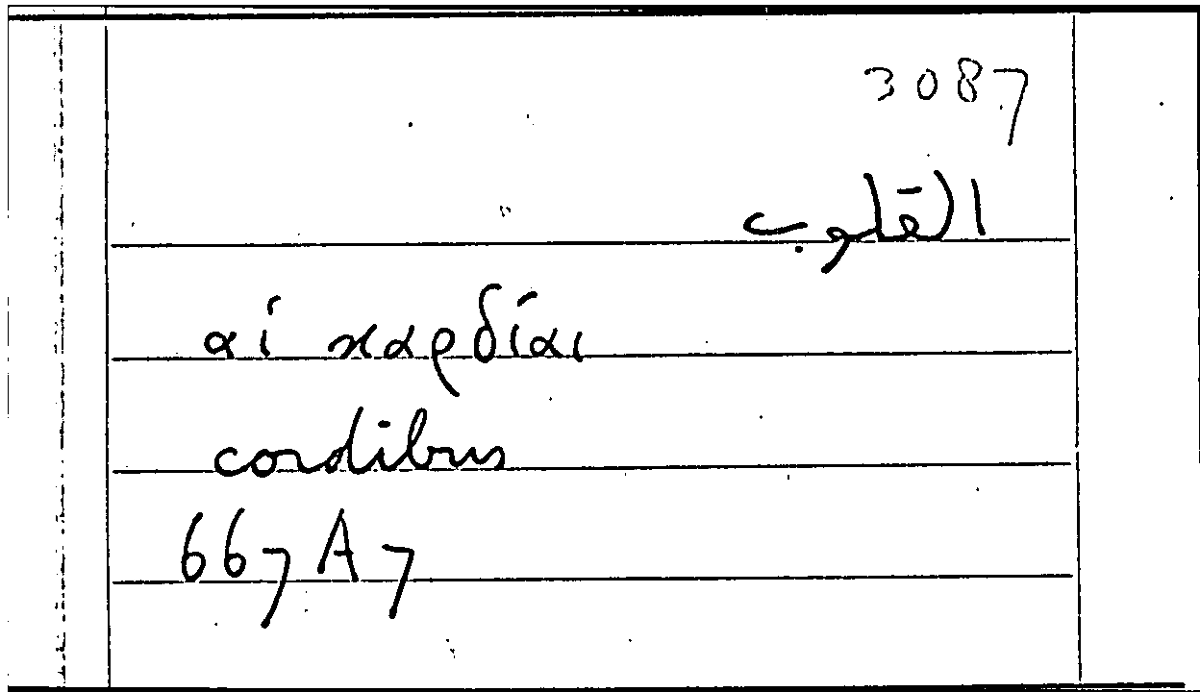 3087
القلوب
αἱ καρδίαι
cordibus
667 A 7